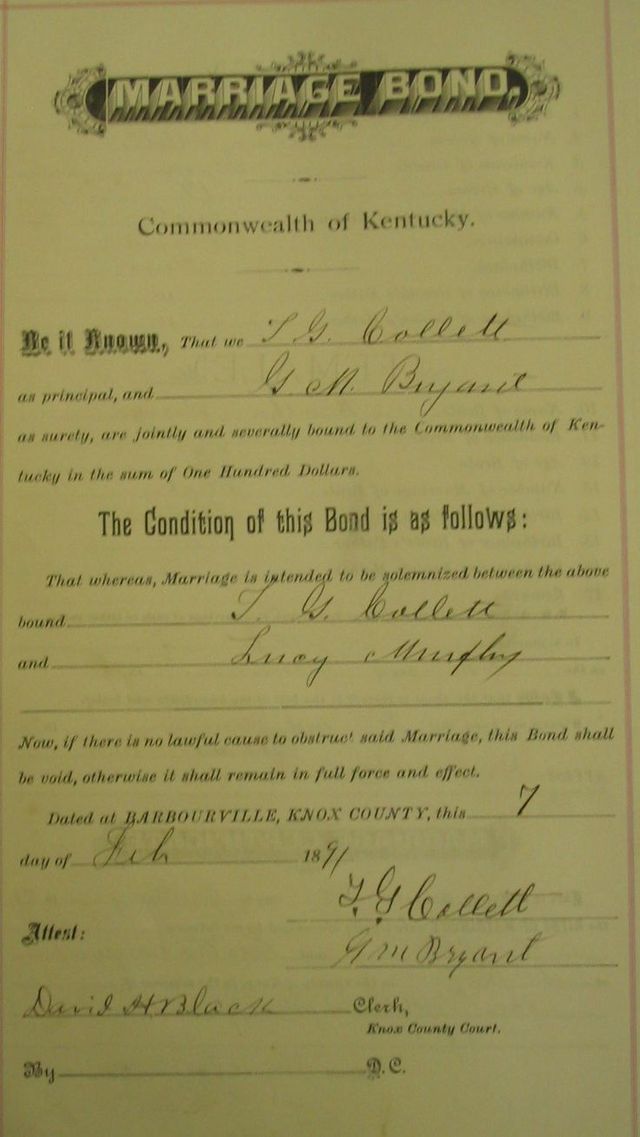 MARRIAGE BOND.
Commonwealth of Kentucky.
Be it Known, That we T G. Collett
as principal, and G. M. Bryant
as surety, are jointly and severally bound to the Commonwealth of Ken-
tucky in the sum of One Hundred Dollars.
The Condition of this Bond is as follows:
That whereas, Marriage is intended to be solemnized between the above
bound T. G. Collett
and Lucy Murphy
Now, if there is no lawful cause to obstruct said Marriage, this Bond shall
be void, otherwise it shall remain in full force and effect.
Dated at BARBOURVILLE, KNOX COUNTY, this 7
day of Feb 1891
T. G Collett
Attest:
G M Bryant
David H Black Clerk,
Knox County Court.
By D. C.